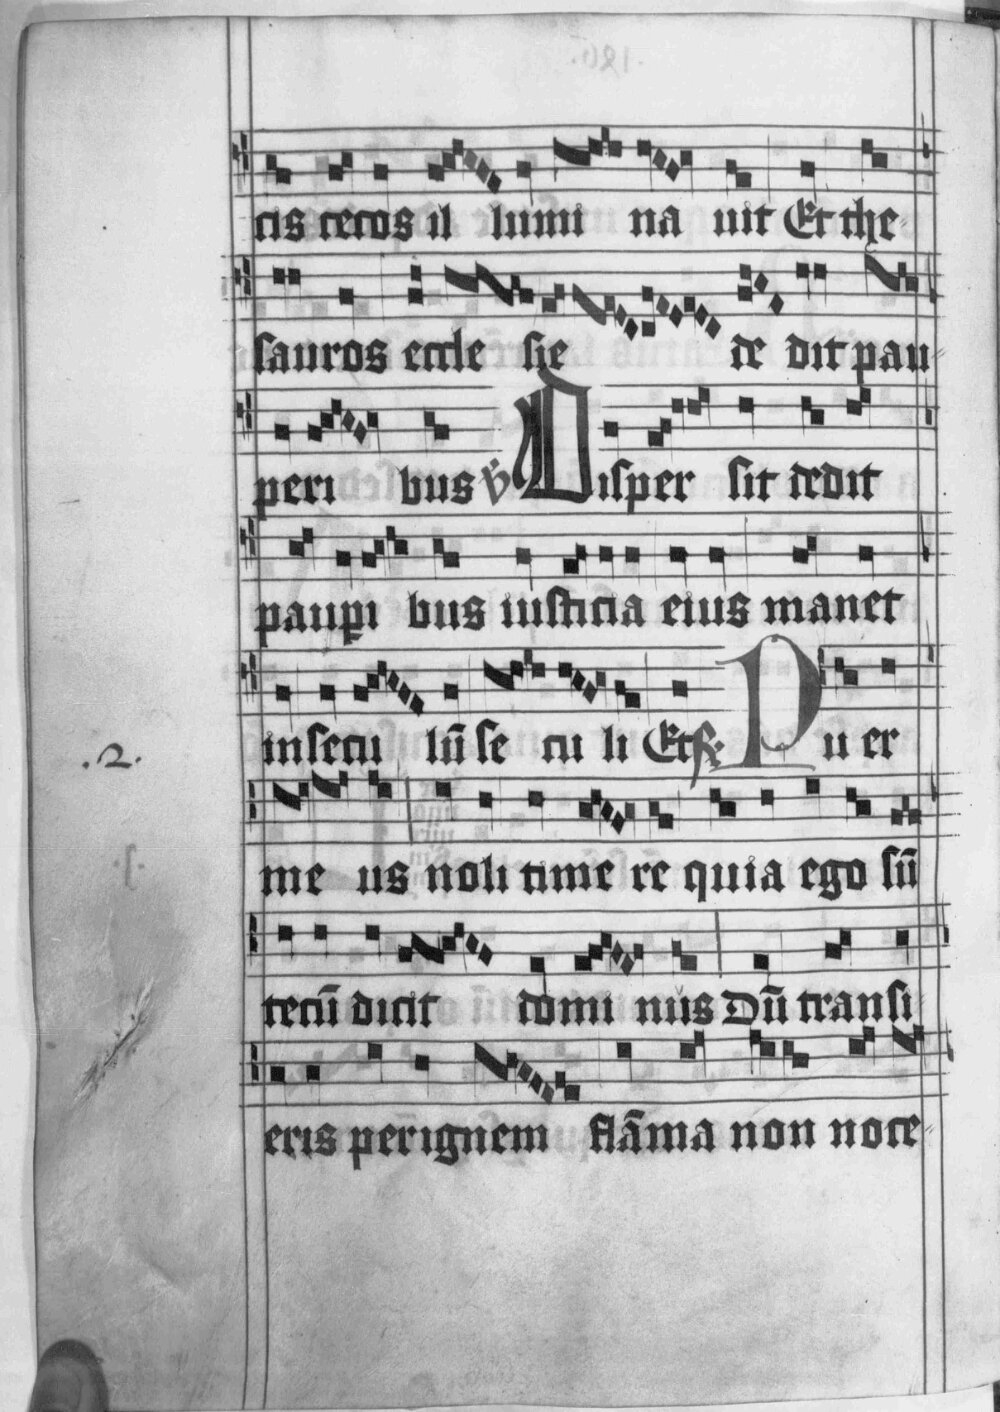 cis cecos il lumi na uit Et the
sauros eccle sie de dit pau
peri bus v̇ Disper sit dedit
paupꝑi bus iusticia eius manet
in secu lū se cu li Et s℟. Pu er
.2.
me us noli time re quia ego sū
tecū dicit domi nus Dū transi
eris per ignem flāma non noce